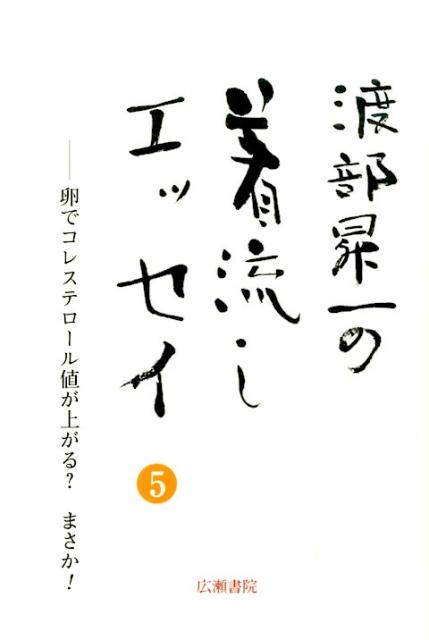 渡部昇一の
着流し
エッセイ
5
――卵でコレステロール値が上がる? まさか!
広瀬書院